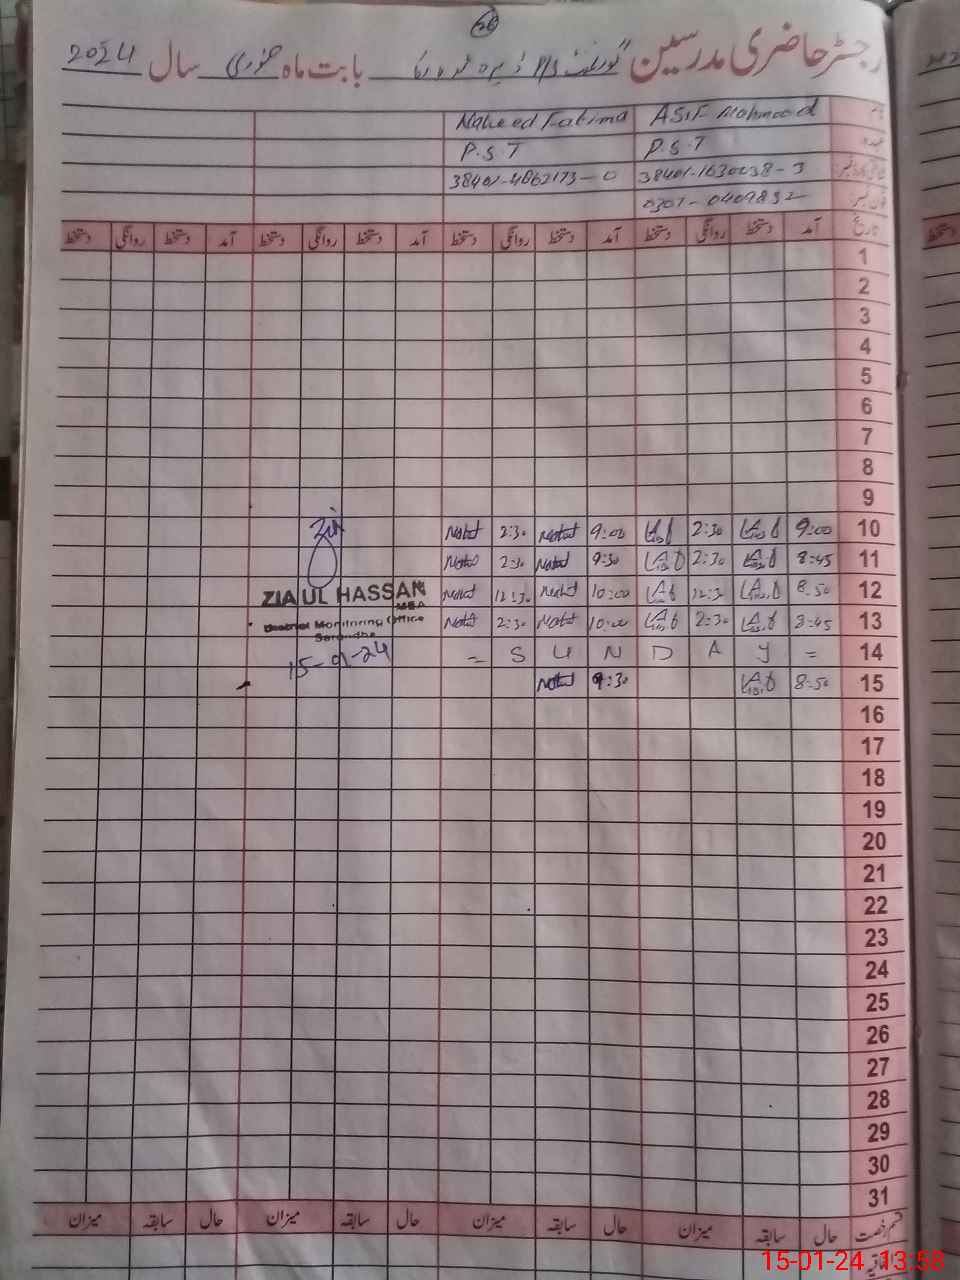 26
رجسٹر حاضری مدرسین گورنمنٹ P/S بابت ماہ جنوری سال 2024
نام Asif Mahmood Naheed Fatima
عہدہ P.S.T P.S.T
شناختی کارڈ نمبر 38401-1630238-3 38401-4863173-0
فون نمبر 0307-0409832
تاریخ آمد دستخط روانگی دستخط آمد دستخط روانگی دستخط آمد دستخط روانگی دستخط آمد دستخط روانگی دستخط
1
2
3
4
5
6
7
8
9
10 9:00 2:30 9:00 2:30
11 8:45 2:30 9:30 2:30
12 8:50 12:30 10:00 12:30
13 8:45 2:30 10:00 2:30
ZIA UL HASSAN
MEA
District Monitoring Office
Sargodha
15-01-24
14 = S U N D A Y =
15 8:50 9:30
16
17
18
19
20
21
22
23
24
25
26
27
28
29
30
31
قسم رخصت حال سابقہ میزان حال سابقہ میزان حال سابقہ میزان حال سابقہ میزان
اتفاقیہ
15-01-24 13:58